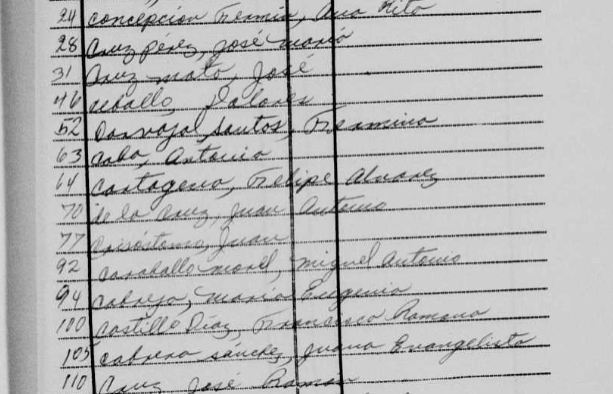 24 Concepción Fermín, Ana Rita
28 Cruz Pérez, José María
31 Cruz Mata, José
46 Ceballo, Dolores
52 Carvajal Santos, Fermina
63 Coba, Antonio
64 Cartagena, Felipe Alvarez
70 de la Cruz, Juan Antonio
77 Crisóstomo, Juan
92 Caraballo Morel, Miguel Antonio
94 Cabreja, María Eugenia
100 Castillo Díaz, Francisco Romano
105 Cabrera Sánchez, Juana Evangelista
110 Cruz José Ramon